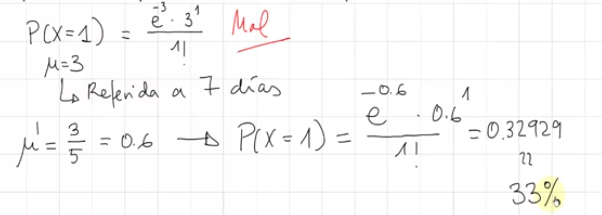 P(X=1) = e^-3 · 3^1 / 1! Mal
μ=3
↳ Referida a 7 días
μ' = 3/5 = 0.6 → P(X=1) = e^-0.6 · 0.6^1 / 1! = 0.32929
≈
33%